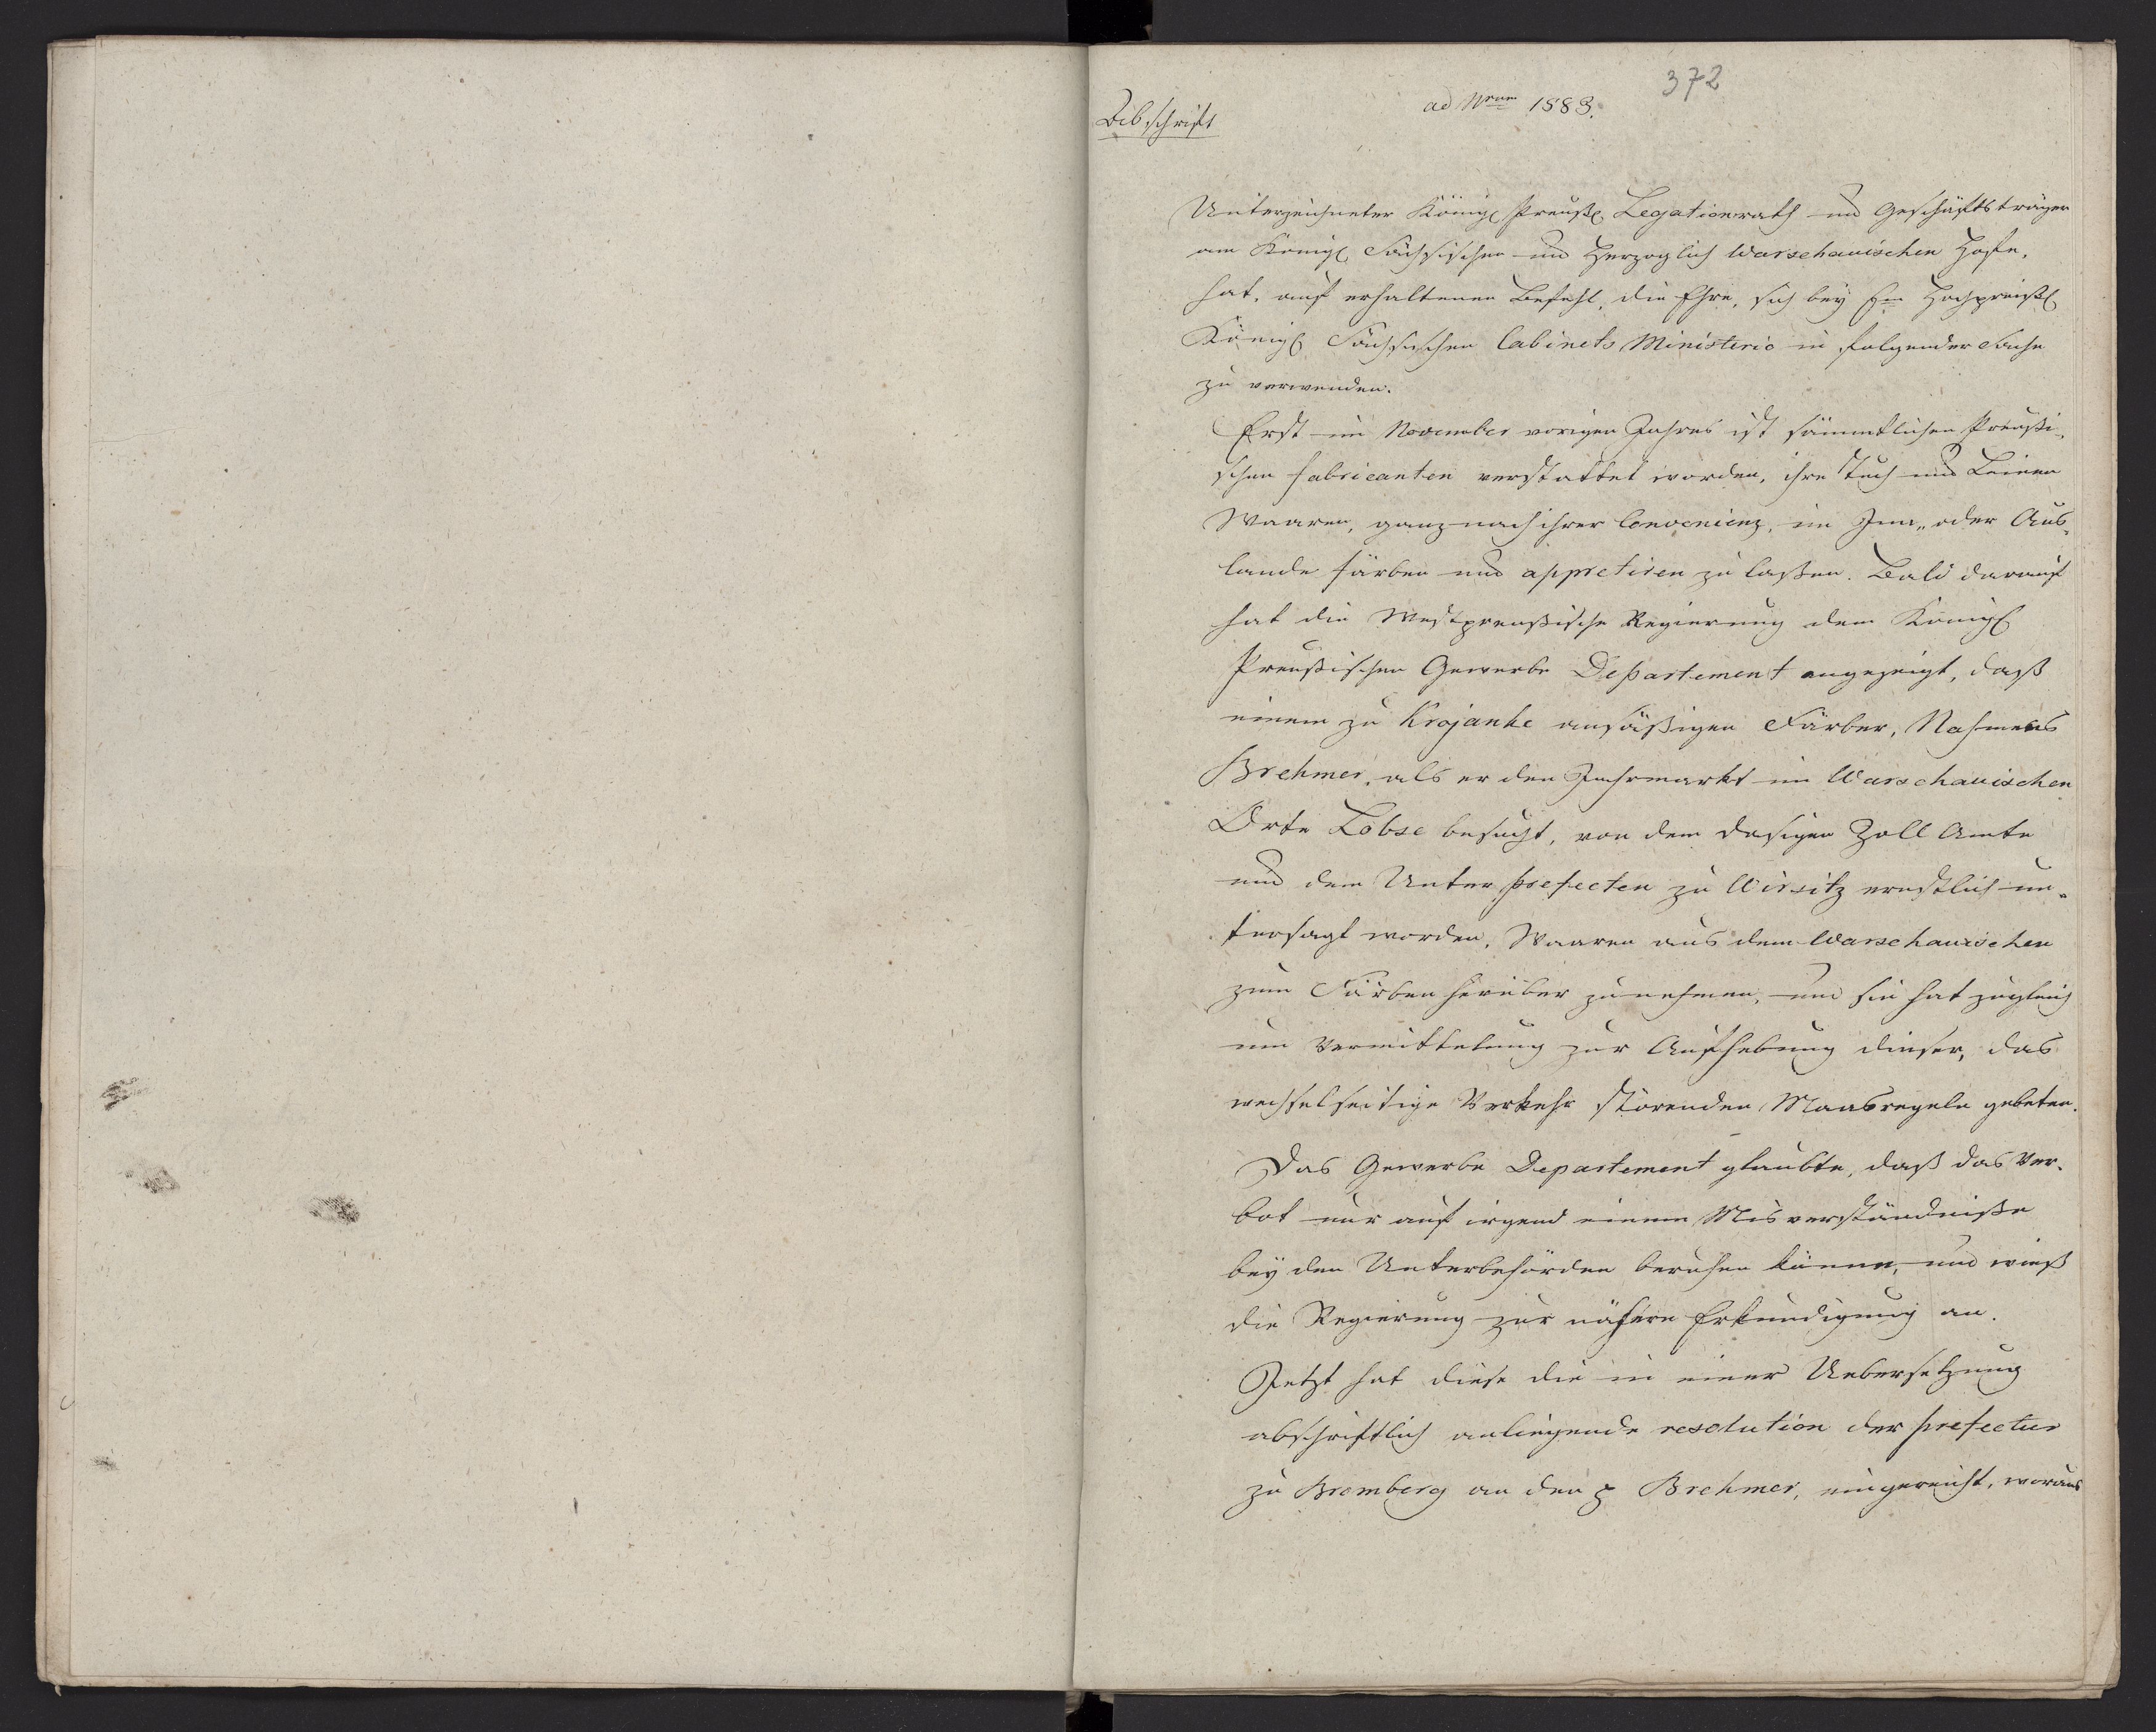 372
ad Nrum 1883.
Abschrift
Unterzeichneter Königl. Preußl. Legationsrath und Geschäftsträger
am Königl. Sächsischen und Herzoglich Warschauischen Hofe,
hat, auf erhaltenen Befehl, die Ehre, sich bey Em Hochpreißl
Königl Sächsischen Cabinets Ministerio in folgender Sache
zu verwenden.
Erst im November vorigen Jahres ist sämmtlichen Preußi-
schen Fabricanten verstattet worden, ihre Tuch und Leinen
Waaren, ganz nach ihrer Convenienz, im Inn- oder Aus-
lande färben und appretiren zu laßen. Bald darauf
hat die Westpreußische Regierung dem Königl
Preußischen Gewerbe Departement angezeigt, daß
einem zu Krojanke ansäßigen Färber, Nahmens
Brehmer, als er den Jahrmarkt im Warschauischen
Orte Lobse besucht, von dem dasigen Zoll Amte
und dem Unterprefecten zu Wirsitz ernstlich un-
tersagt worden, Waaren aus dem Warschauischen
zum Färben herüber zu nehmen, und sie hat zugleich
um Vermittelung zur Aufhebung dieser, das
wechselseitige Verkehr störenden Maasregeln gebeten.
Das Gewerbe Departement glaubte, daß das Ver-
bot nur auf irgend einem Misverständniße
bey den Unterbehörden beruhen könne, und wieß
die Regierung zur nähern Erkundigung an.
Jetzt hat diese die in einer Uebersetzung
abschriftlich anliegende resolution der prefectur
zu Bromberg an den p Brehmer, eingereicht, woraus